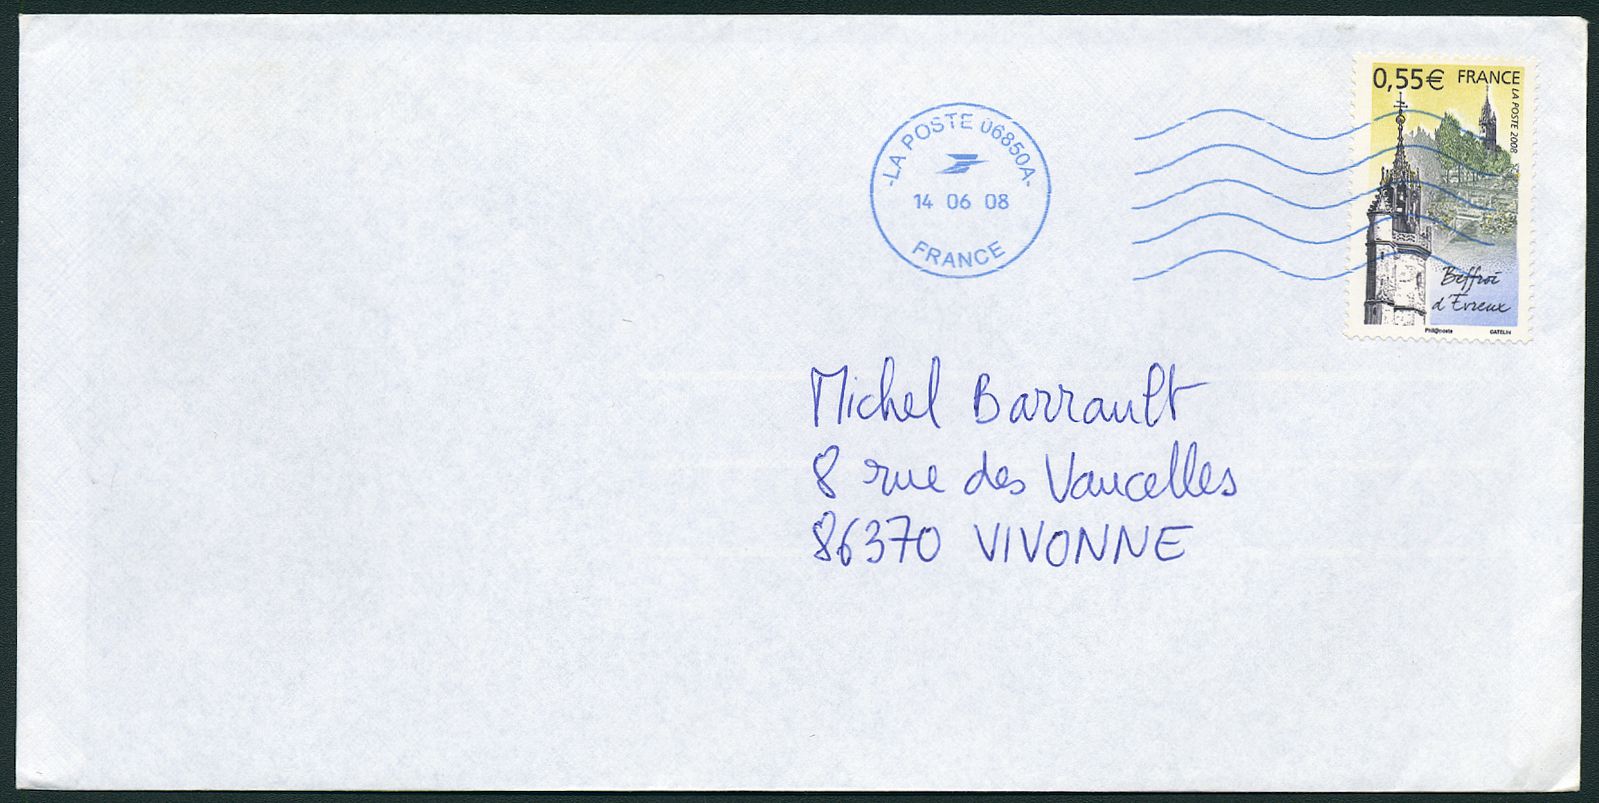 0,55€ FRANCE
LA POSTE 2008
-LA POSTE 06850A-
14 06 08
FRANCE
Beffroi
d'Evreux
Phil@poste GATELIN
Michel Barrault
8 rue des Vaucelles
86370 VIVONNE